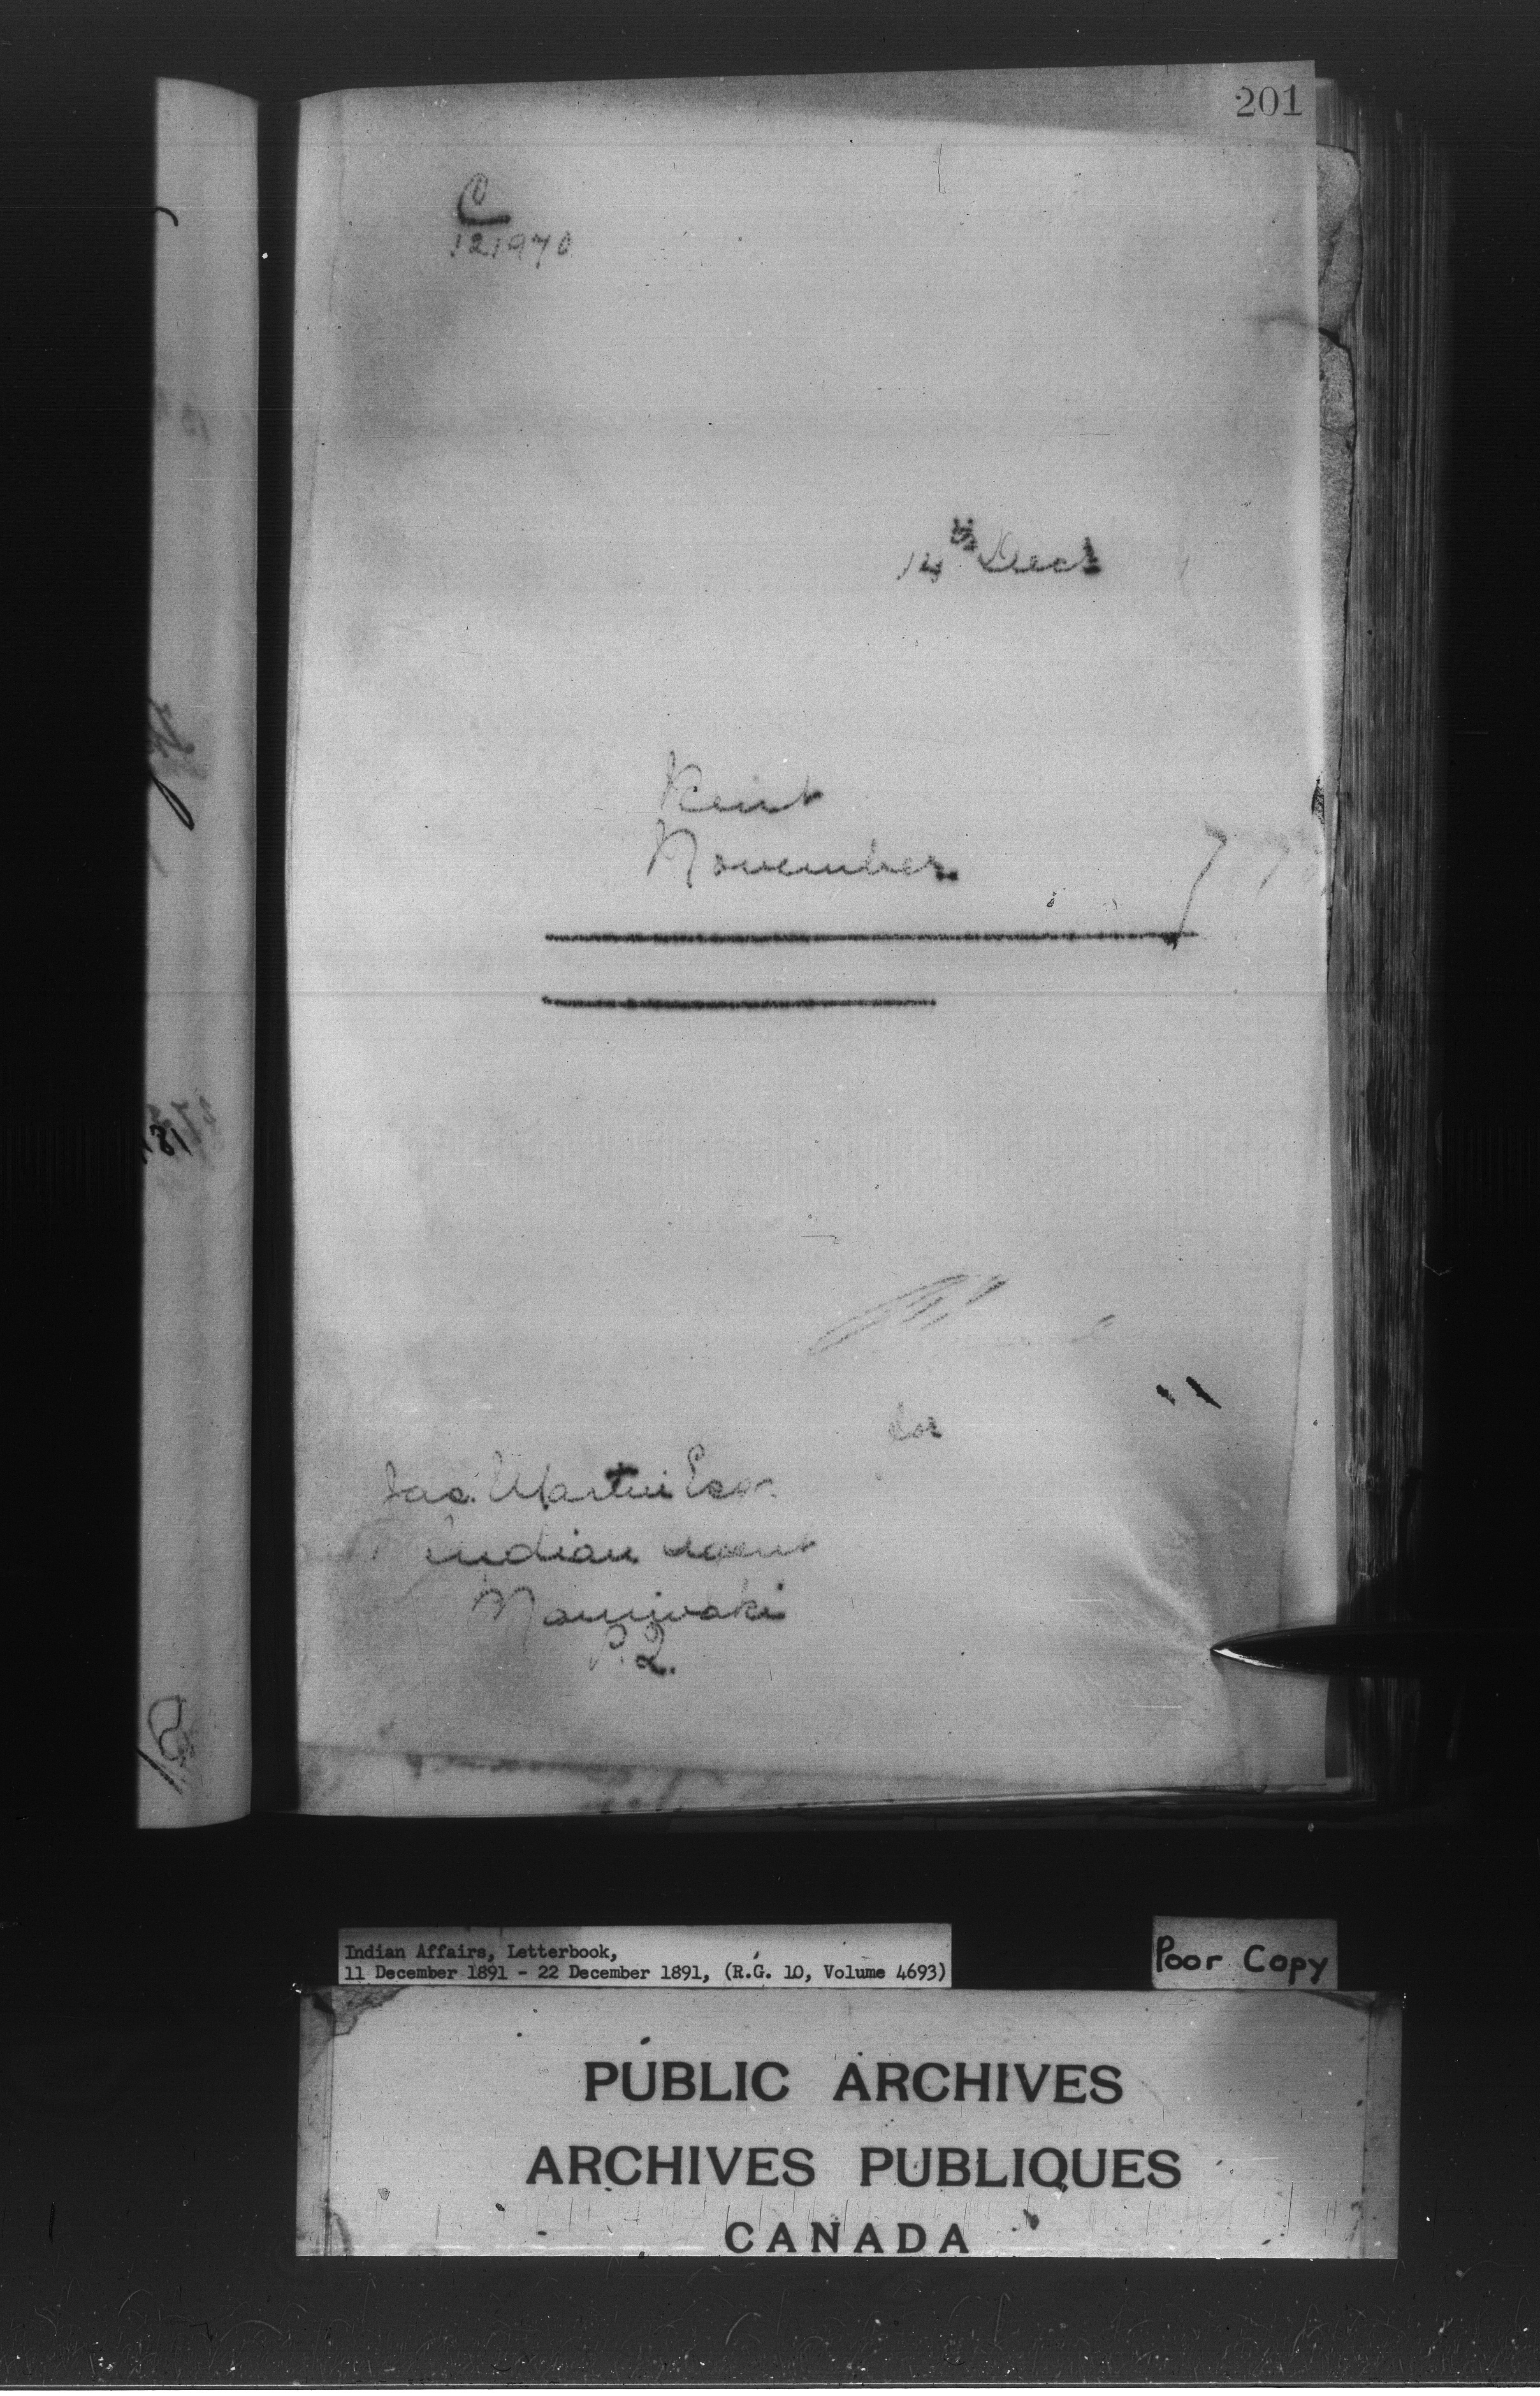 201
C
121970
14th Dec
Rent
November
7 7
for
Jas. Martin Esqr.
Indian Agent
Maniwaki
P.Q.
Indian Affairs, Letterbook,
11 December 1891 - 22 December 1891, (R.G. 10, Volume 4693)
Poor Copy
PUBLIC ARCHIVES
ARCHIVES PUBLIQUES
CANADA